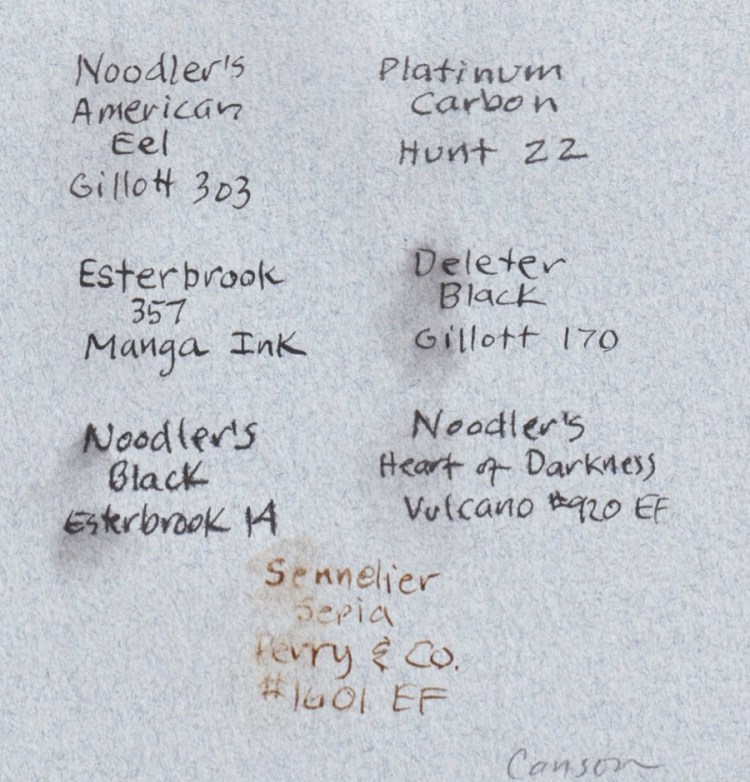 Noodler's
American
Eel
Gillott 303
Platinum
Carbon
Hunt 22
Esterbrook
357
Manga Ink
Deleter
Black
Gillott 170
Noodler's
Black
Esterbrook 14
Noodler's
Heart of Darkness
Vulcano #920 EF
Sennelier
Sepia
Perry & Co.
#1601 EF
Canson